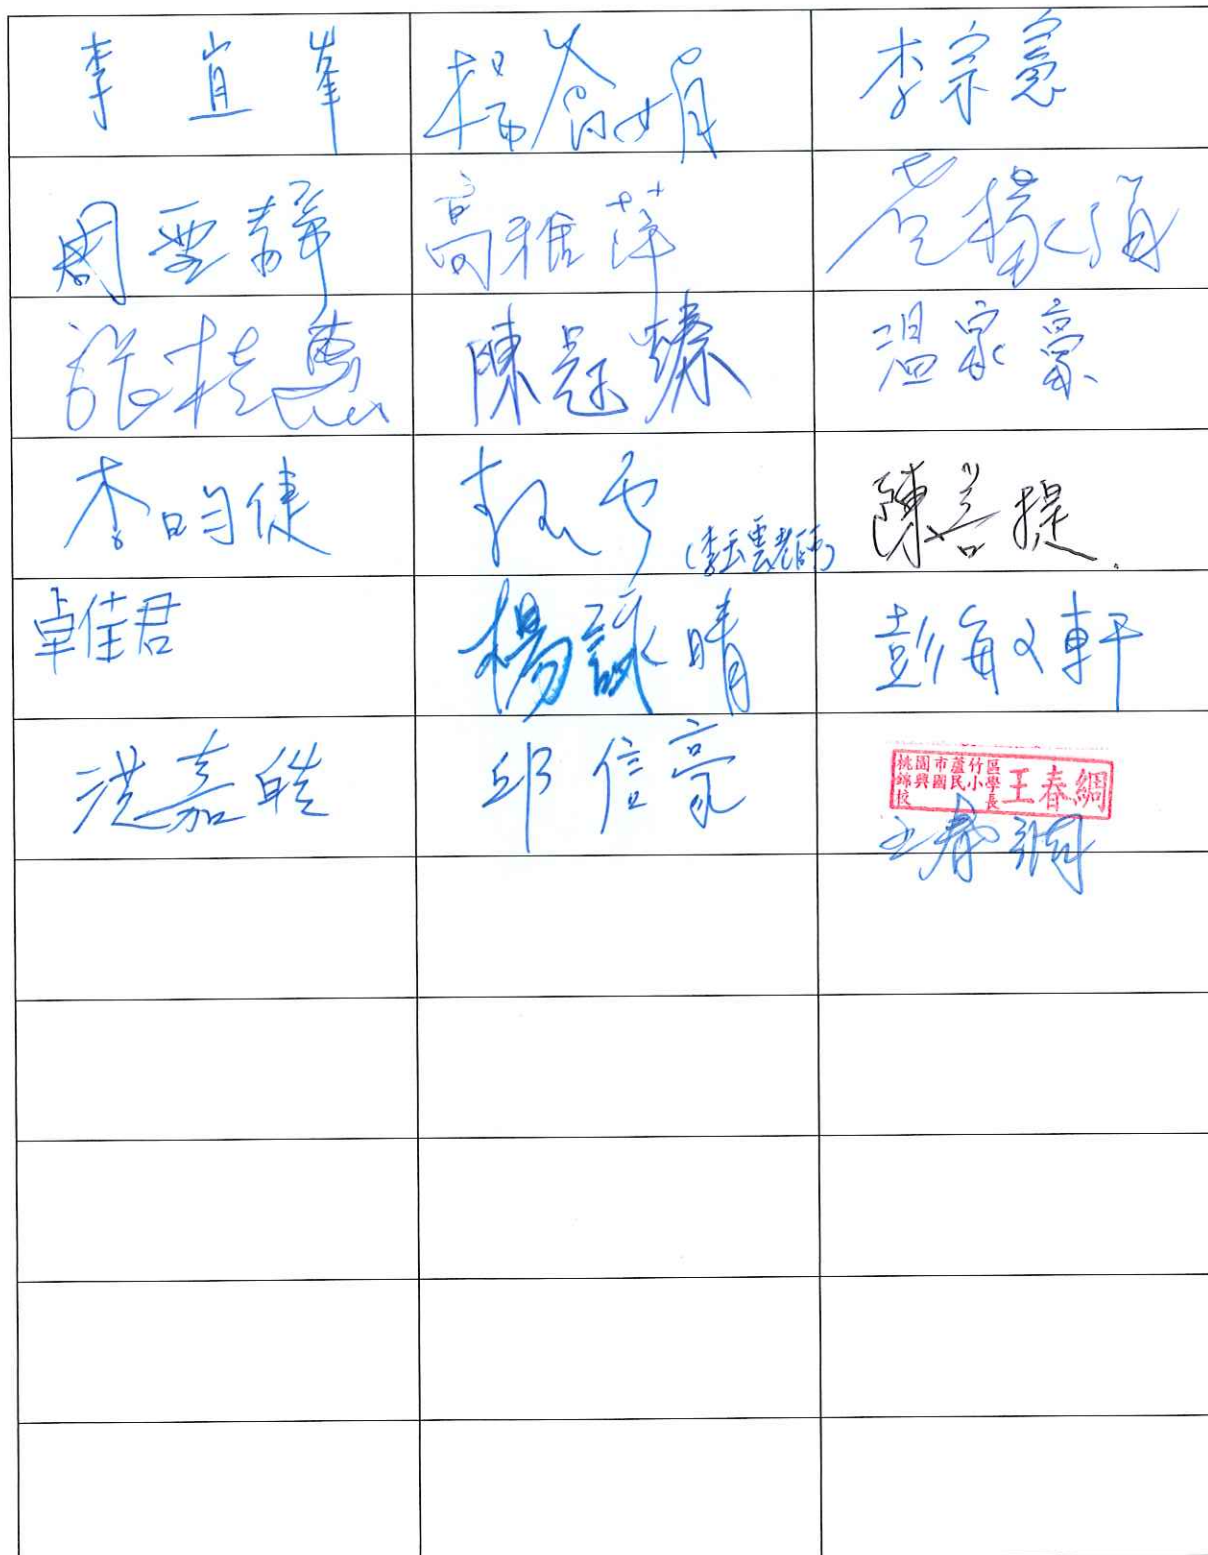 李宜峯
楊谷娟
李宗憲
周雲靜
高雅萍
張桂惠
陳冠臻
温家豪
李昀倢
(李玉雲老師)
陳菩提
卓佳君
楊詠晴
彭敏軒
洪嘉皓
邱信豪
桃園市蘆竹區
錦興國民小學
校長
王春綢
王春綢